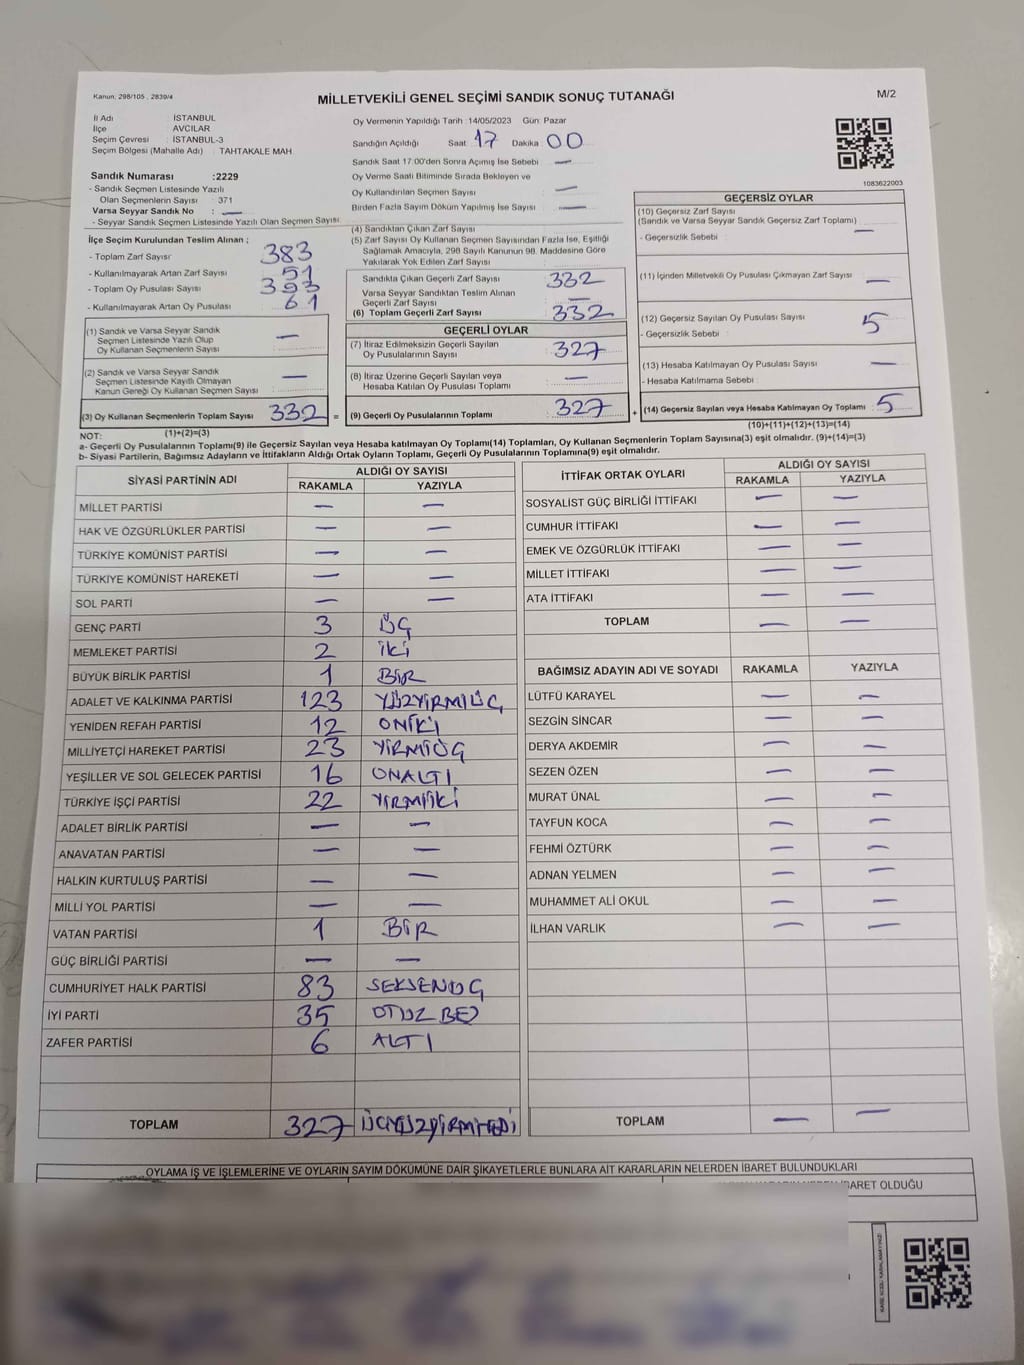 Kanun, 298/105 , 2839/4
MİLLETVEKİLİ GENEL SEÇİMİ SANDIK SONUÇ TUTANAĞI
M/2
İl Adı : İSTANBUL
İlçe AVCILAR
Seçim Çevresi : İSTANBUL-3
Seçim Bölgesi (Mahalle Adı) : TAHTAKALE MAH
Oy Vermenin Yapıldığı Tarih :14/05/2023 Gün: Pazar
Sandığın Açıldığı Saat : 17 Dakika 00
Sandık Saat 17:00'den Sonra Açımış İse Sebebi —
Oy Verme Saati Bitiminde Sırada Bekleyen ve
Oy Kullandırılan Seçmen Sayısı —
Birden Fazla Sayım Döküm Yapılmış İse Sayısı —
1083622003
Sandık Numarası :2229
- Sandık Seçmen Listesinde Yazılı
Olan Seçmenlerin Sayısı : 371
Varsa Seyyar Sandık No : —
- Seyyar Sandık Seçmen Listesinde Yazılı Olan Seçmen Sayısı:
İlçe Seçim Kurulundan Teslim Alınan ;
- Toplam Zarf Sayısı 383
- Kullanılmayarak Artan Zarf Sayısı 51
- Toplam Oy Pusulası Sayısı 393
- Kullanılmayarak Artan Oy Pusulası 61
(1) Sandık ve Varsa Seyyar Sandık
Seçmen Listesinde Yazılı Olup
Oy Kullanan Seçmenlerin Sayısı —
(2) Sandık ve Varsa Seyyar Sandık
Seçmen Listesinde Kayıtlı Olmayan
Kanun Gereği Oy Kullanan Seçmen Sayısı —
(3) Oy Kullanan Seçmenlerin Toplam Sayısı 332 =
(1)+(2)=(3)
(4) Sandıktan Çıkan Zarf Sayısı
(5) Zarf Sayısı Oy Kullanan Seçmen Sayısından Fazla İse, Eşitliği
Sağlamak Amacıyla, 298 Sayılı Kanunun 98. Maddesine Göre
Yakılarak Yok Edilen Zarf Sayısı
Sandıkta Çıkan Geçerli Zarf Sayısı 332
Varsa Seyyar Sandıktan Teslim Alınan
Geçerli Zarf Sayısı —
(6) Toplam Geçerli Zarf Sayısı 332
GEÇERLİ OYLAR
(7) İtiraz Edilmeksizin Geçerli Sayılan
Oy Pusulalarının Sayısı 327
(8) İtiraz Üzerine Geçerli Sayılan veya
Hesaba Katılan Oy Pusulası Toplamı —
(9) Geçerli Oy Pusulalarının Toplamı 327 +
GEÇERSİZ OYLAR
(10) Geçersiz Zarf Sayısı
(Sandık ve Varsa Seyyar Sandık Geçersiz Zarf Toplamı)
- Geçersizlik Sebebi : —
(11) İçinden Milletvekili Oy Pusulası Çıkmayan Zarf Sayısı —
(12) Geçersiz Sayılan Oy Pusulası Sayısı 5
- Geçersizlik Sebebi :
(13) Hesaba Katılmayan Oy Pusulası Sayısı —
- Hesaba Katılmama Sebebi :
(14) Geçersiz Sayılan veya Hesaba Katılmayan Oy Toplamı : 5
(10)+(11)+(12)+(13)=(14)
NOT:
a- Geçerli Oy Pusulalarının Toplamı(9) ile Geçersiz Sayılan veya Hesaba katılmayan Oy Toplamı(14) Toplamları, Oy Kullanan Seçmenlerin Toplam Sayısına(3) eşit olmalıdır. (9)+(14)=(3)
b- Siyasi Partilerin, Bağımsız Adayların ve İttifakların Aldığı Ortak Oyların Toplamı, Geçerli Oy Pusulalarının Toplamına(9) eşit olmalıdır.
SİYASİ PARTİNİN ADI ALDIĞI OY SAYISI
RAKAMLA YAZIYLA
MİLLET PARTİSİ — —
HAK VE ÖZGÜRLÜKLER PARTİSİ — —
TÜRKİYE KOMÜNİST PARTİSİ — —
TÜRKİYE KOMÜNİST HAREKETİ — —
SOL PARTİ — —
GENÇ PARTİ 3 ÜÇ
MEMLEKET PARTİSİ 2 İKİ
BÜYÜK BİRLİK PARTİSİ 1 BİR
ADALET VE KALKINMA PARTİSİ 123 YÜZYİRMİÜÇ
YENİDEN REFAH PARTİSİ 12 ONİKİ
MİLLİYETÇİ HAREKET PARTİSİ 23 YİRMİÜÇ
YEŞİLLER VE SOL GELECEK PARTİSİ 16 ONALTI
TÜRKİYE İŞÇİ PARTİSİ 22 YİRMİİKİ
ADALET BİRLİK PARTİSİ — —
ANAVATAN PARTİSİ — —
HALKIN KURTULUŞ PARTİSİ — —
MİLLİ YOL PARTİSİ — —
VATAN PARTİSİ 1 BİR
GÜÇ BİRLİĞİ PARTİSİ — —
CUMHURİYET HALK PARTİSİ 83 SEKSENÜÇ
İYİ PARTİ 35 OTUZ BEŞ
ZAFER PARTİSİ 6 ALTI
TOPLAM 327 ÜÇYÜZYİRMİYEDİ
İTTİFAK ORTAK OYLARI ALDIĞI OY SAYISI
RAKAMLA YAZIYLA
SOSYALİST GÜÇ BİRLİĞİ İTTİFAKI — —
CUMHUR İTTİFAKI — —
EMEK VE ÖZGÜRLÜK İTTİFAKI — —
MİLLET İTTİFAKI — —
ATA İTTİFAKI — —
TOPLAM — —
BAĞIMSIZ ADAYIN ADI VE SOYADI RAKAMLA YAZIYLA
LÜTFÜ KARAYEL — —
SEZGİN SİNCAR — —
DERYA AKDEMİR — —
SEZEN ÖZEN — —
MURAT ÜNAL — —
TAYFUN KOCA — —
FEHMİ ÖZTÜRK — —
ADNAN YELMEN — —
MUHAMMET ALİ OKUL — —
İLHAN VARLIK — —
TOPLAM — —
OYLAMA İŞ VE İŞLEMLERİNE VE OYLARIN SAYIM DÖKÜMÜNE DAİR ŞİKAYETLERLE BUNLARA AİT KARARLARIN NELERDEN İBARET BULUNDUKLARI
İBARET OLDUĞU